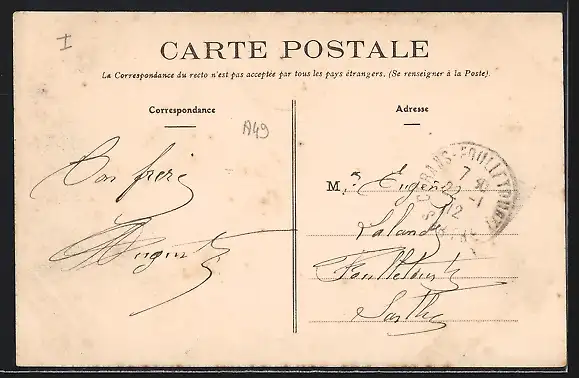 I
CARTE POSTALE
La Correspondance du recto n'est pas acceptée par tous les pays étrangers. (Se renseigner à la Poste).
Correspondance
Adresse
A49
Ton frère
Auguste
M. r Eugène
Lalande
Foulletourte
Sarthe
7 30
2 -1
12